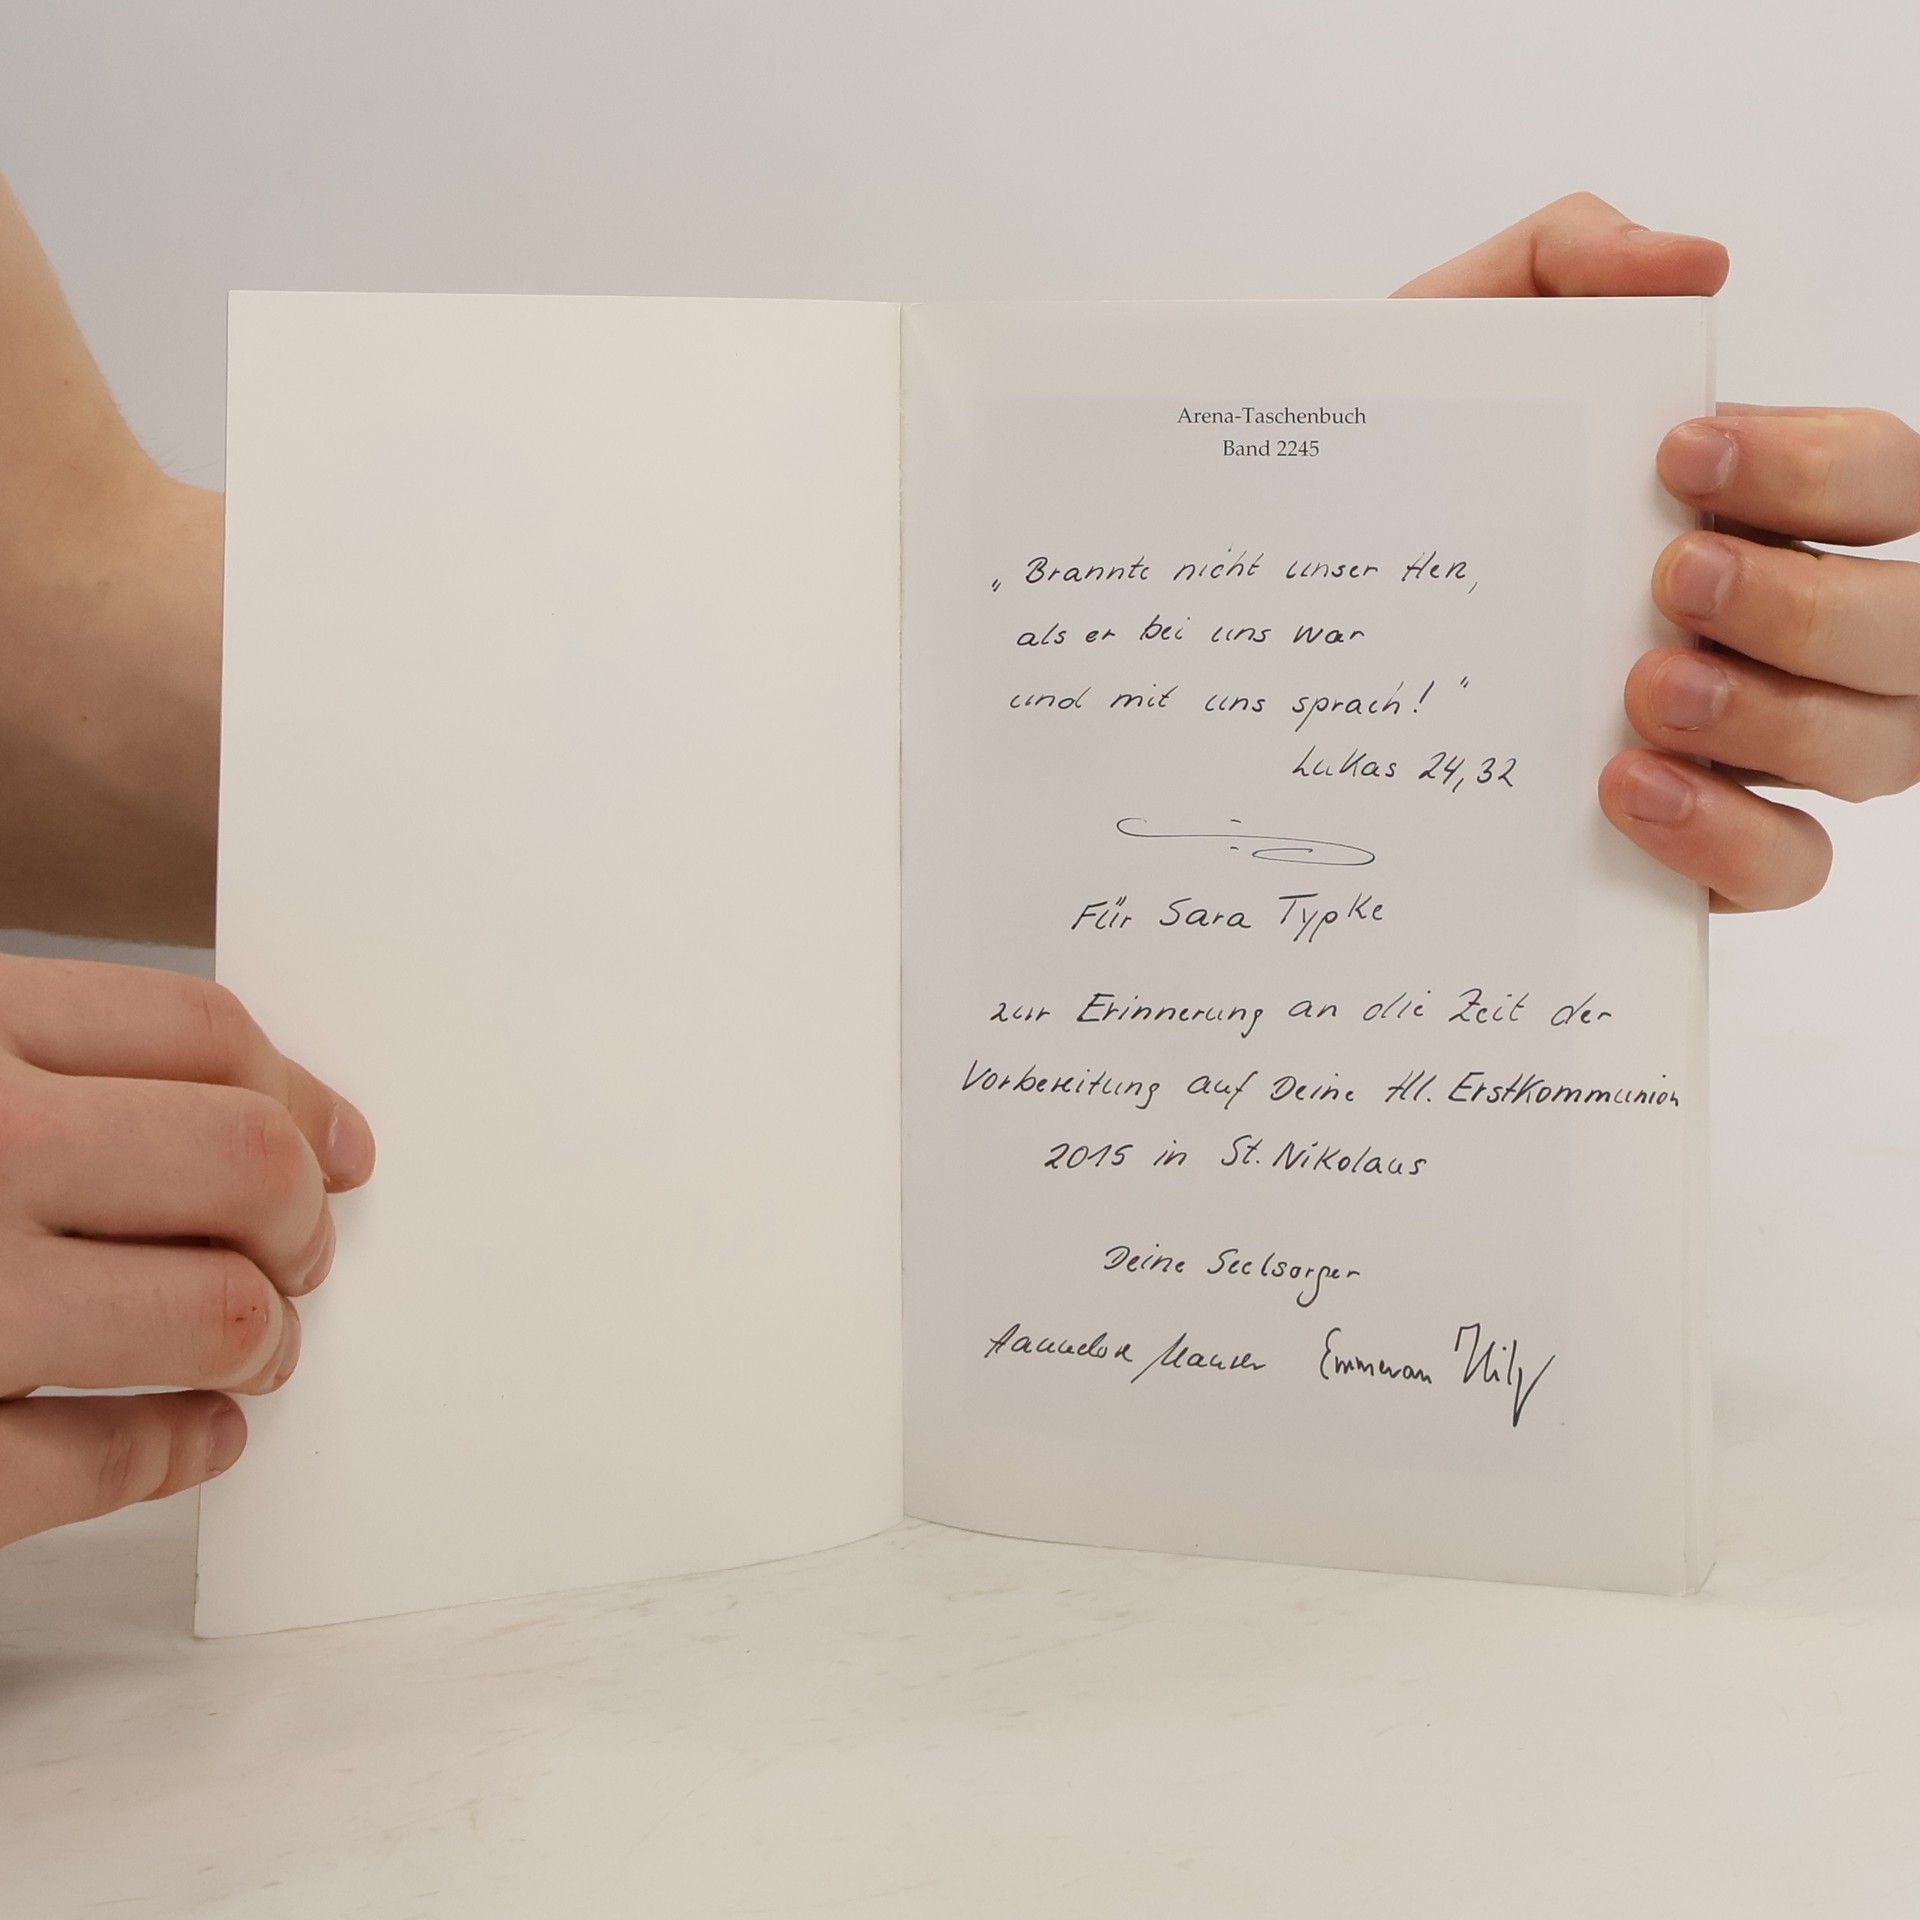 Arena-Taschenbuch
Band 2245
„Brannte nicht unser Herz,
als er bei uns war
und mit uns sprach!“
Lukas 24,32
Für Sara Typke
zur Erinnerung an die Zeit der
Vorbereitung auf Deine Hl. Erstkommunion
2015 in St. Nikolaus
Deine Seelsorger
Hannelore Emmeran